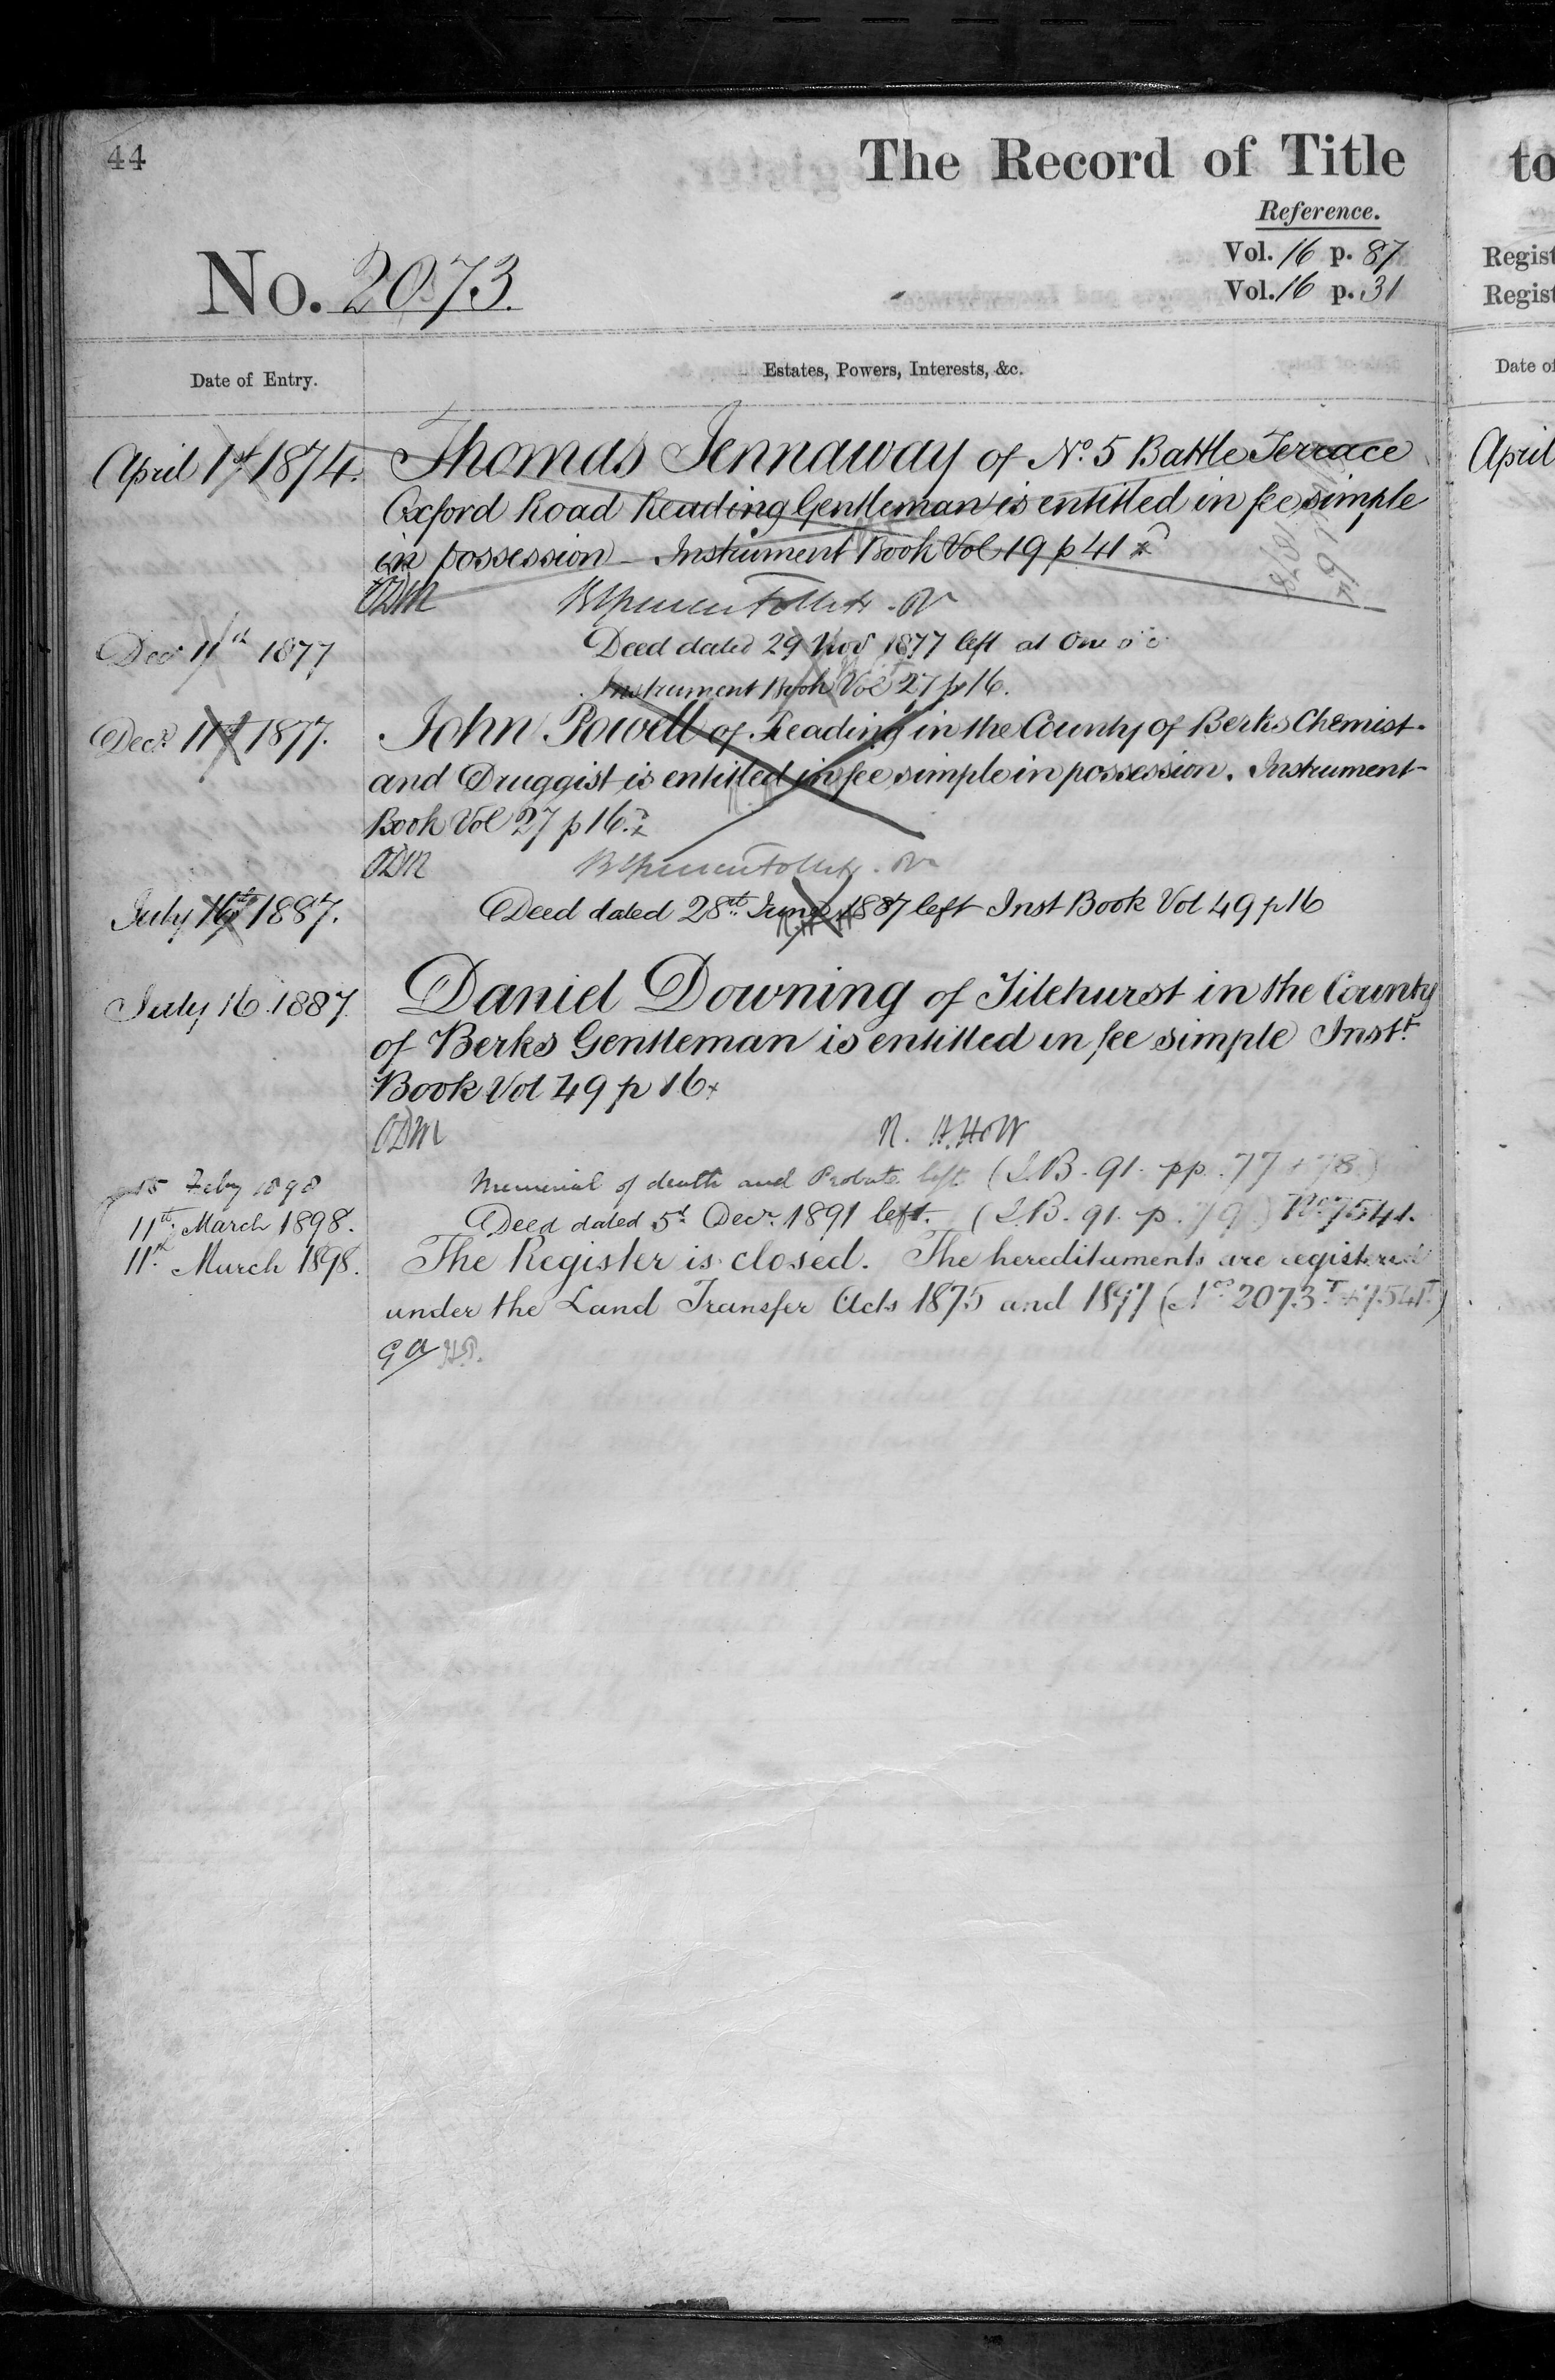 44
The Record of Title
Reference.
Vol. 16 p. 87
Vol. 16 p. 31
No. 2073.
Date of Entry.
Estates, Powers, Interests, &c.
April 1st 1874. Thomas Jennaway of No. 5 Battle Terrace
Oxford Road Reading Gentleman is entitled in fee simple
in possession – Instrument Book Vol 19 p 41
ODM
Decr 11th 1877 Deed dated 29 Novr 1877 left at One o'c
Instrument Book Vol 27 p 16.
Decr. 11th 1877. John Powell of Reading in the County of Berks Chemist
and Druggist is entitled in fee simple in possession. Instrument
Book Vol 27 p 16.
ODM
July 16th 1887. Deed dated 28th June 1887 left Inst Book Vol 49 p 16
July 16 1887. Daniel Downing of Tilehurst in the County
of Berks Gentleman is entitled in fee simple Instt.
Book Vol 49 p 16
ODM R. H. Holt
15 Feby 1898 Memorial of death and Probate left (I.B. 91. pp. 77 + 78)
11th March 1898. Deed dated 5th Decr. 1891 left. (I.B. 91. p. 79) No 7541.
11th March 1898. The Register is closed. The hereditaments are registered
under the Land Transfer Acts 1875 and 1897 (Nos 2073T + 7541T)
GA H.P.
to
Regist
Regist
Date of
April